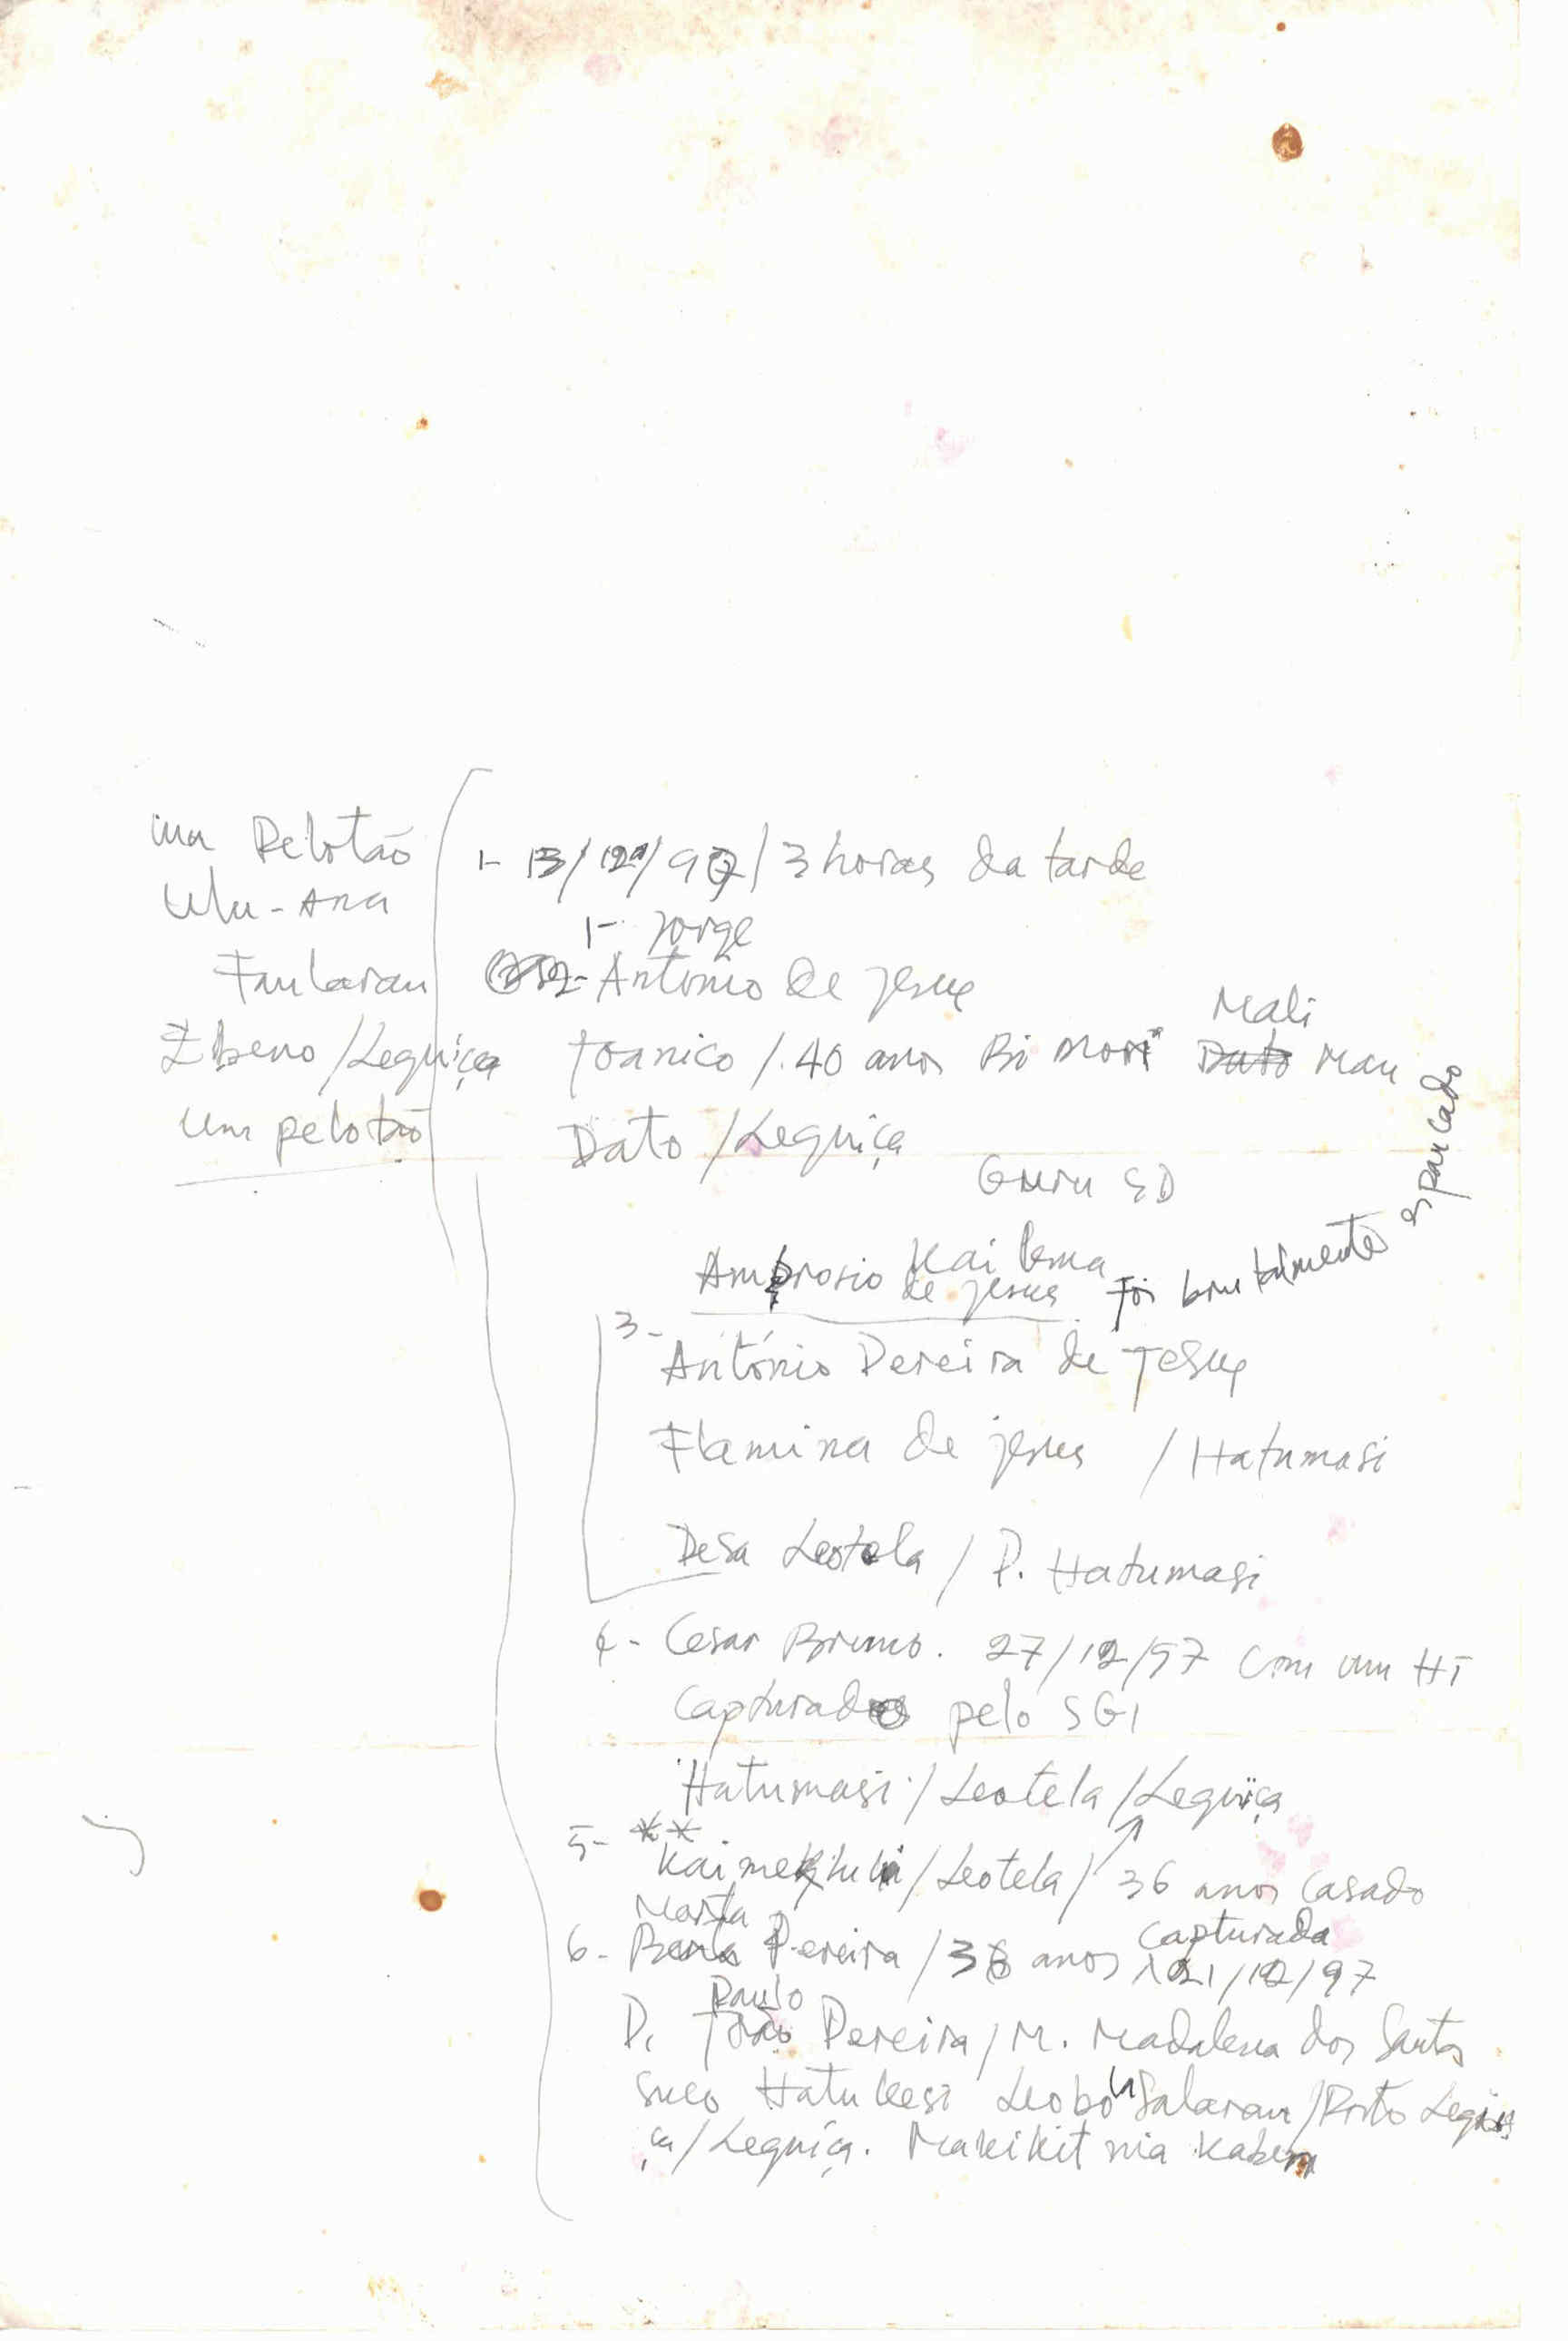 um Pelotão
Ulu-Ana
Faularan
Ebeno/Lequiça
um pelotão
1- 13/12/97/3 horas da tarde
1- Jorge
2- Antonio de Jesus
Joanico /. 40 anos Bi Mori Mali Mau
Dato /Lequiça
Guru SD
Ambrosio Kai lema
de Jesus foi brutalmente espancado
3-
António Pereira de Jesus
Flamina de jesus / Hatumasi
Desa Leotela / P. Hatumasi
4- Cesar Bruno. 27/12/97 com um HT
Capturado pelo SGI
Hatumasi/Leotela/Lequiça
5- **
/Leotela/ 36 anos Casado
Marta
6- Pereira /38 anos Capturada
21/12/97
Paulo
P. João Pereira/M. Madalena dos Santos
suco Hatukesi Salaran/Posto Lequi
ça/Lequiça. Makikit nia kaben